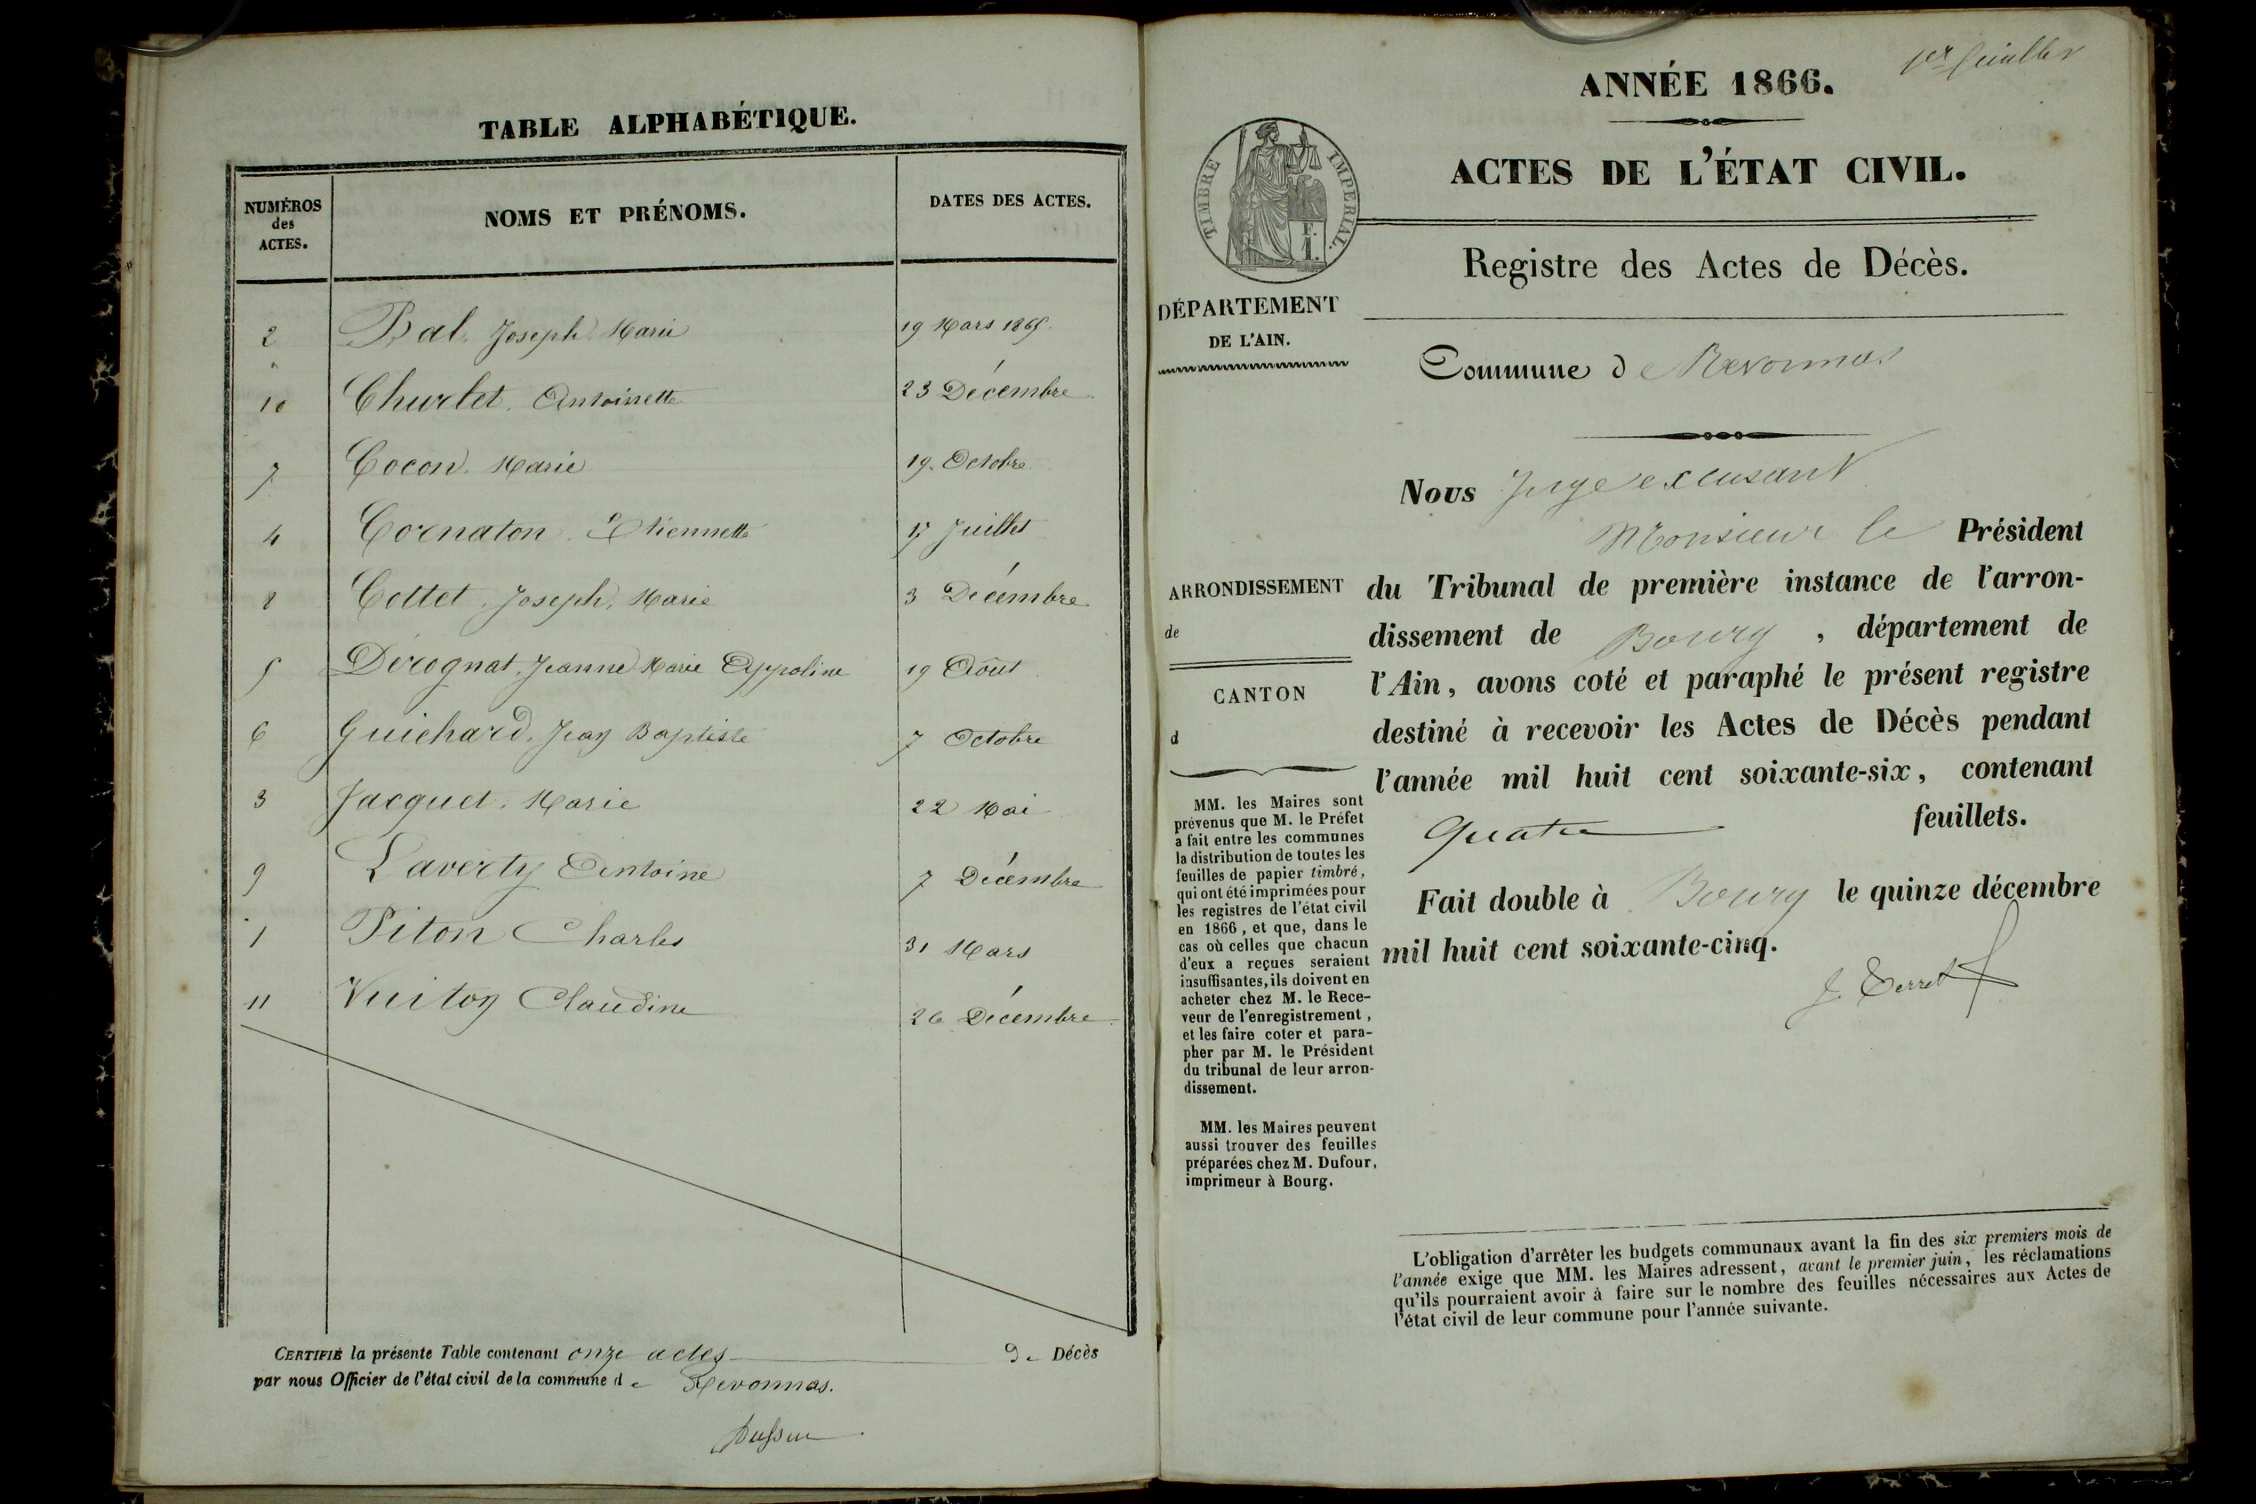 TABLE ALPHABÉTIQUE.
NUMÉROS des ACTES. NOMS ET PRÉNOMS. DATES DES ACTES.
2 Bal Joseph Marie 19 Mars 1865
10 Churlet Antoinette 23 Décembre
7 Cocon Marie 19 Octobre
4 Cornaton Etiennette 17 Juillet
8 Cottet Joseph Marie 3 Décembre
5 Dérognat Jeanne Marie Appoline 19 Août
6 Guichard Jean Baptiste 7 Octobre
3 Jacquet Marie 22 Mai
9 Laverty Antoine 7 Décembre
1 Piton Charles 31 Mars
11 Vuiton Claudine 26 Décembre
CERTIFIÉ la présente Table contenant onze actes de Décès
par nous Officier de l'état civil de la commune de Revonnas.
1er feuillet
ANNÉE 1866.
ACTES DE L'ÉTAT CIVIL.
TIMBRE IMPÉRIAL.
F. 1.
Registre des Actes de Décès.
DÉPARTEMENT
DE L'AIN.
Commune de Revonnas
ARRONDISSEMENT
de
CANTON
d
MM. les Maires sont
prévenus que M. le Préfet
a fait entre les communes
la distribution de toutes les
feuilles de papier timbré,
qui ont été imprimées pour
les registres de l'état civil
en 1866, et que, dans le
cas où celles que chacun
d'eux a reçues seraient
insuffisantes, ils doivent en
acheter chez M. le Rece-
veur de l'enregistrement,
et les faire coter et para-
pher par M. le Président
du tribunal de leur arron-
dissement.
MM. les Maires peuvent
aussi trouver des feuilles
préparées chez M. Dufour,
imprimeur à Bourg.
Nous Juge excusant
Monsieur le Président
du Tribunal de première instance de l'arron-
dissement de Bourg, département de
l'Ain, avons coté et paraphé le présent registre
destiné à recevoir les Actes de Décès pendant
l'année mil huit cent soixante-six, contenant
Quatre feuillets.
Fait double à Bourg le quinze décembre
mil huit cent soixante-cinq.
L'obligation d'arrêter les budgets communaux avant la fin des six premiers mois de
l'année exige que MM. les Maires adressent, avant le premier juin, les réclamations
qu'ils pourraient avoir à faire sur le nombre des feuilles nécessaires aux Actes de
l'état civil de leur commune pour l'année suivante.